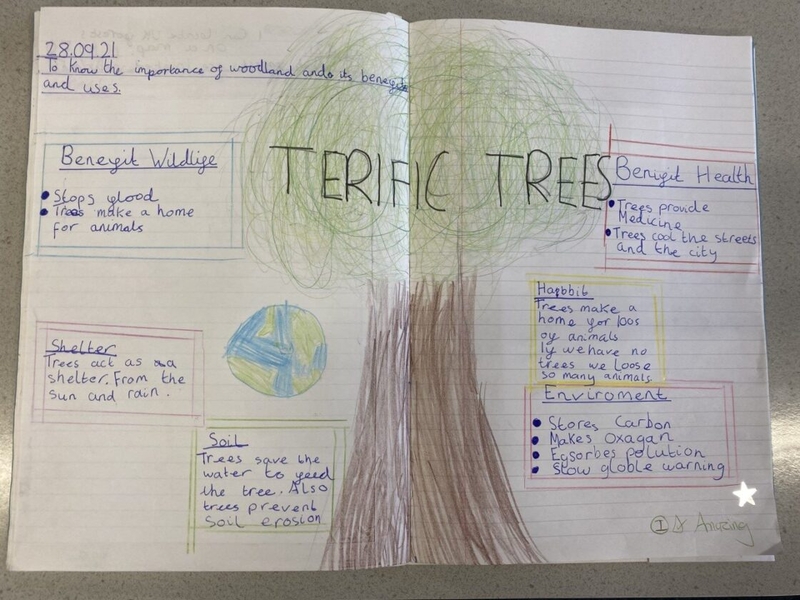 28.09.21
To know the importance of woodland and its benefits
and uses.
TERIFIC TREES
Benefit Wildlife
Stops flood
Trees make a home
for animals
Benifit Health
Trees provide
Medicine
Trees cool the streets
and the city
Habbit
Trees make a
home for loos
of animals
If we have no
trees we loose
so many animals
Shelter
Trees act as a
shelter. From the
sun and rain.
Enviroment
Stores Carbon
Makes Oxagan
Egsorbes polution
Slow globle warning
Soil
Trees save the
water to feed
the tree. Also
trees prevent
Soil erosion
I Amazing